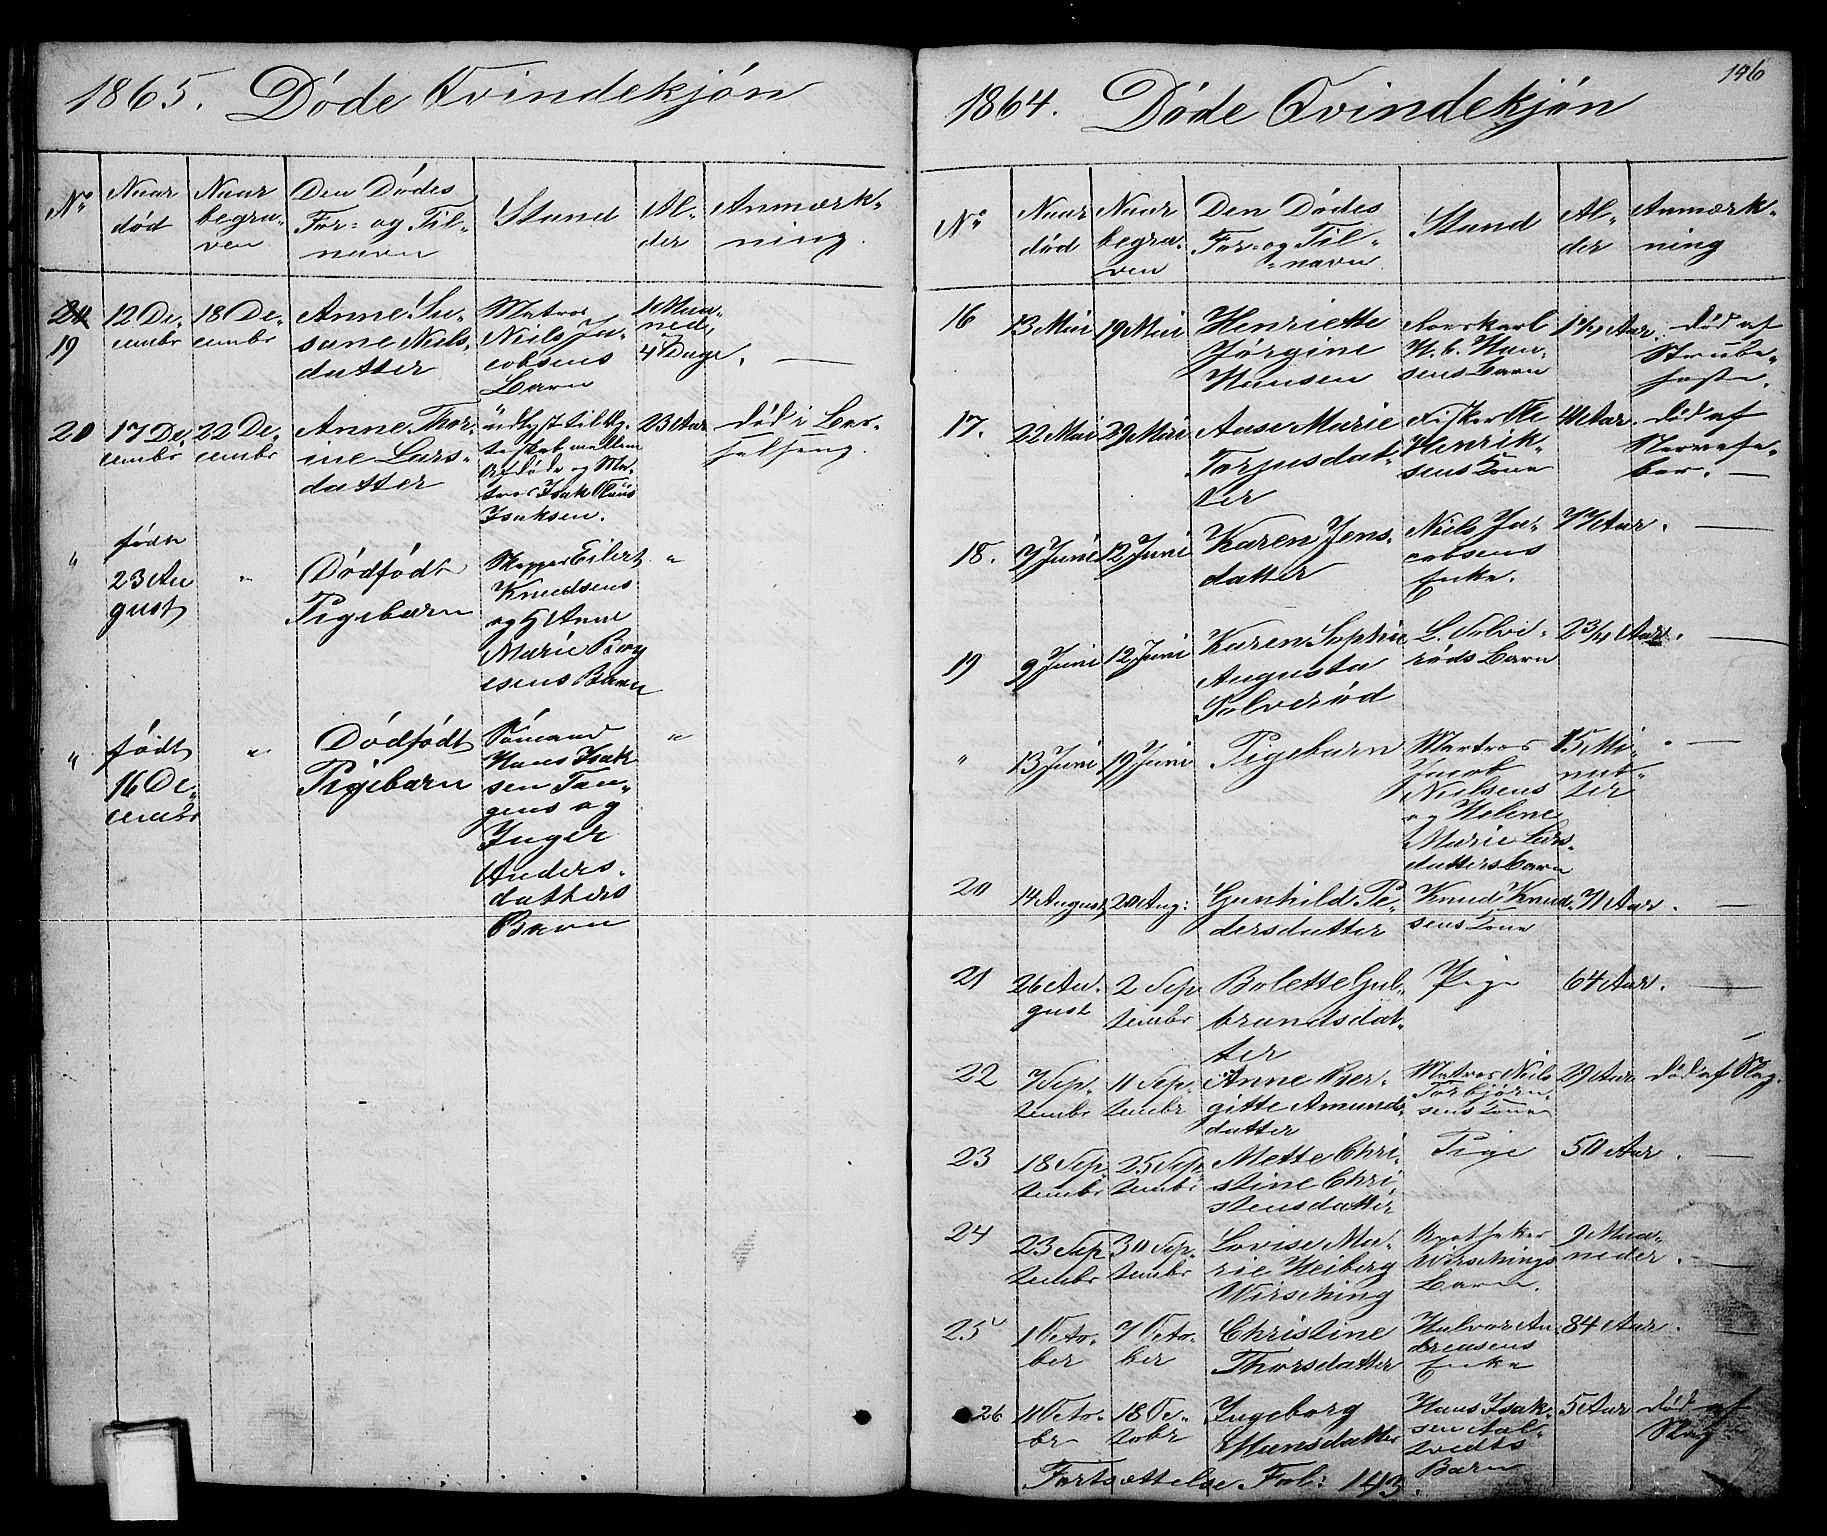 1865. Døde Qvindekjøn
No
Naar død
Naar begra-ven
Den Dødes For= og Til-navn
Stand
Al-der
Anmærk-ning.
19
12 De-
cembr
18 De-
cembr
Anne Su-
sane Niels-
datter
Matros
Niels Ja-
cobsens
Barn
11 Maa-
neder
4 Dage.
—
20
17 De-
cembr
22 De-
cembr
Anne Thor-
ine Lars-
datter
Matros Isak
Isaksen.
23 Aar
død i Bar-
selseng.
"
født
23 Au
gust
"
Dødfødt
Pigebarn
Skipper Eilert
Knudsens
og H Anne
Marie Borg
esens Barn
"
"
født
16 De-
cembr
"
Dødfødt
Pigebarn
Sømand
Hans Isak
sen Tan-
gens og
Inger
Anders-
datters
Barn
"
146
1864. Døde Qvindekjøn
No
Naar død
Naar begra-ven
Den Dødes For= og Til-navn
Stand
Al-der
Anmærk-ning
16
13 Mai
19 Mai
Henriette
Jørgine
Hansen
H. C. Han-
sens Barn
1 1/4 Aar.
død af
Strube-
hoste.
17.
22 Mai
29 Mai
Aase Marie
Torjusdat-
ter
Fisker Ole
Henrik-
sens Kone
41 Aar.
død af
Nervefe-
ber. —
18.
7 Juni
12 Juni
Karen Jens-
datter
Niels Ja-
cobsens
Enke.
77 Aar.
—
19
9 Juni
12 Juni
Karen Sophie
Augusta
Solverød
L. Solve-
røds Barn
2 3/4 Aar.
—
"
13 Juni
19 Juni
Pigebarn
Matros
Jacob
Nielsens
og Helene
Marie Lars-
datters Barn
15 Mi-
nut-
ter
. —
20
14 August
20 Aug:
Gunhild Pe-
dersdatter
Knud Knud-
sens Kone
71 Aar.
—
21
26 Au-
gust
2 Sep
tembr
Bolette Gul-
brandsdat-
ter
Pige
64 Aar.
—
22
7 Sep-
tembr
11 Sep-
tembr
Anne Ber-
gitte Amunds-
datter
Matros Niels
Torbjørn-
sens Kone
29 Aar
død af Slag.
23
18 Sep
tembr
25 Sep
tembr
Mette Chri-
stine Chri-
stensdatter
Pige
50 Aar.
—
24
23 Sep
tembr
30 Sep-
tembr
Lovise Ma-
rie Heiberg
Wirsching
Apotheker
Wirschings
Barn.
9 Maa-
neder.
—
25
1 Octo-
ber
7 Octo-
ber
Christine
Thorsdatter
Halvor An-
dreasens
Enke
84 Aar.
—
26
11 Octo-
br
18 Oc-
tobr
Ingeborg
Hansdatter
Hans Isak-
sen Aal-
vedts
Barn
5 Aar
død af
Slag
Fortsættelse Fol: 143.